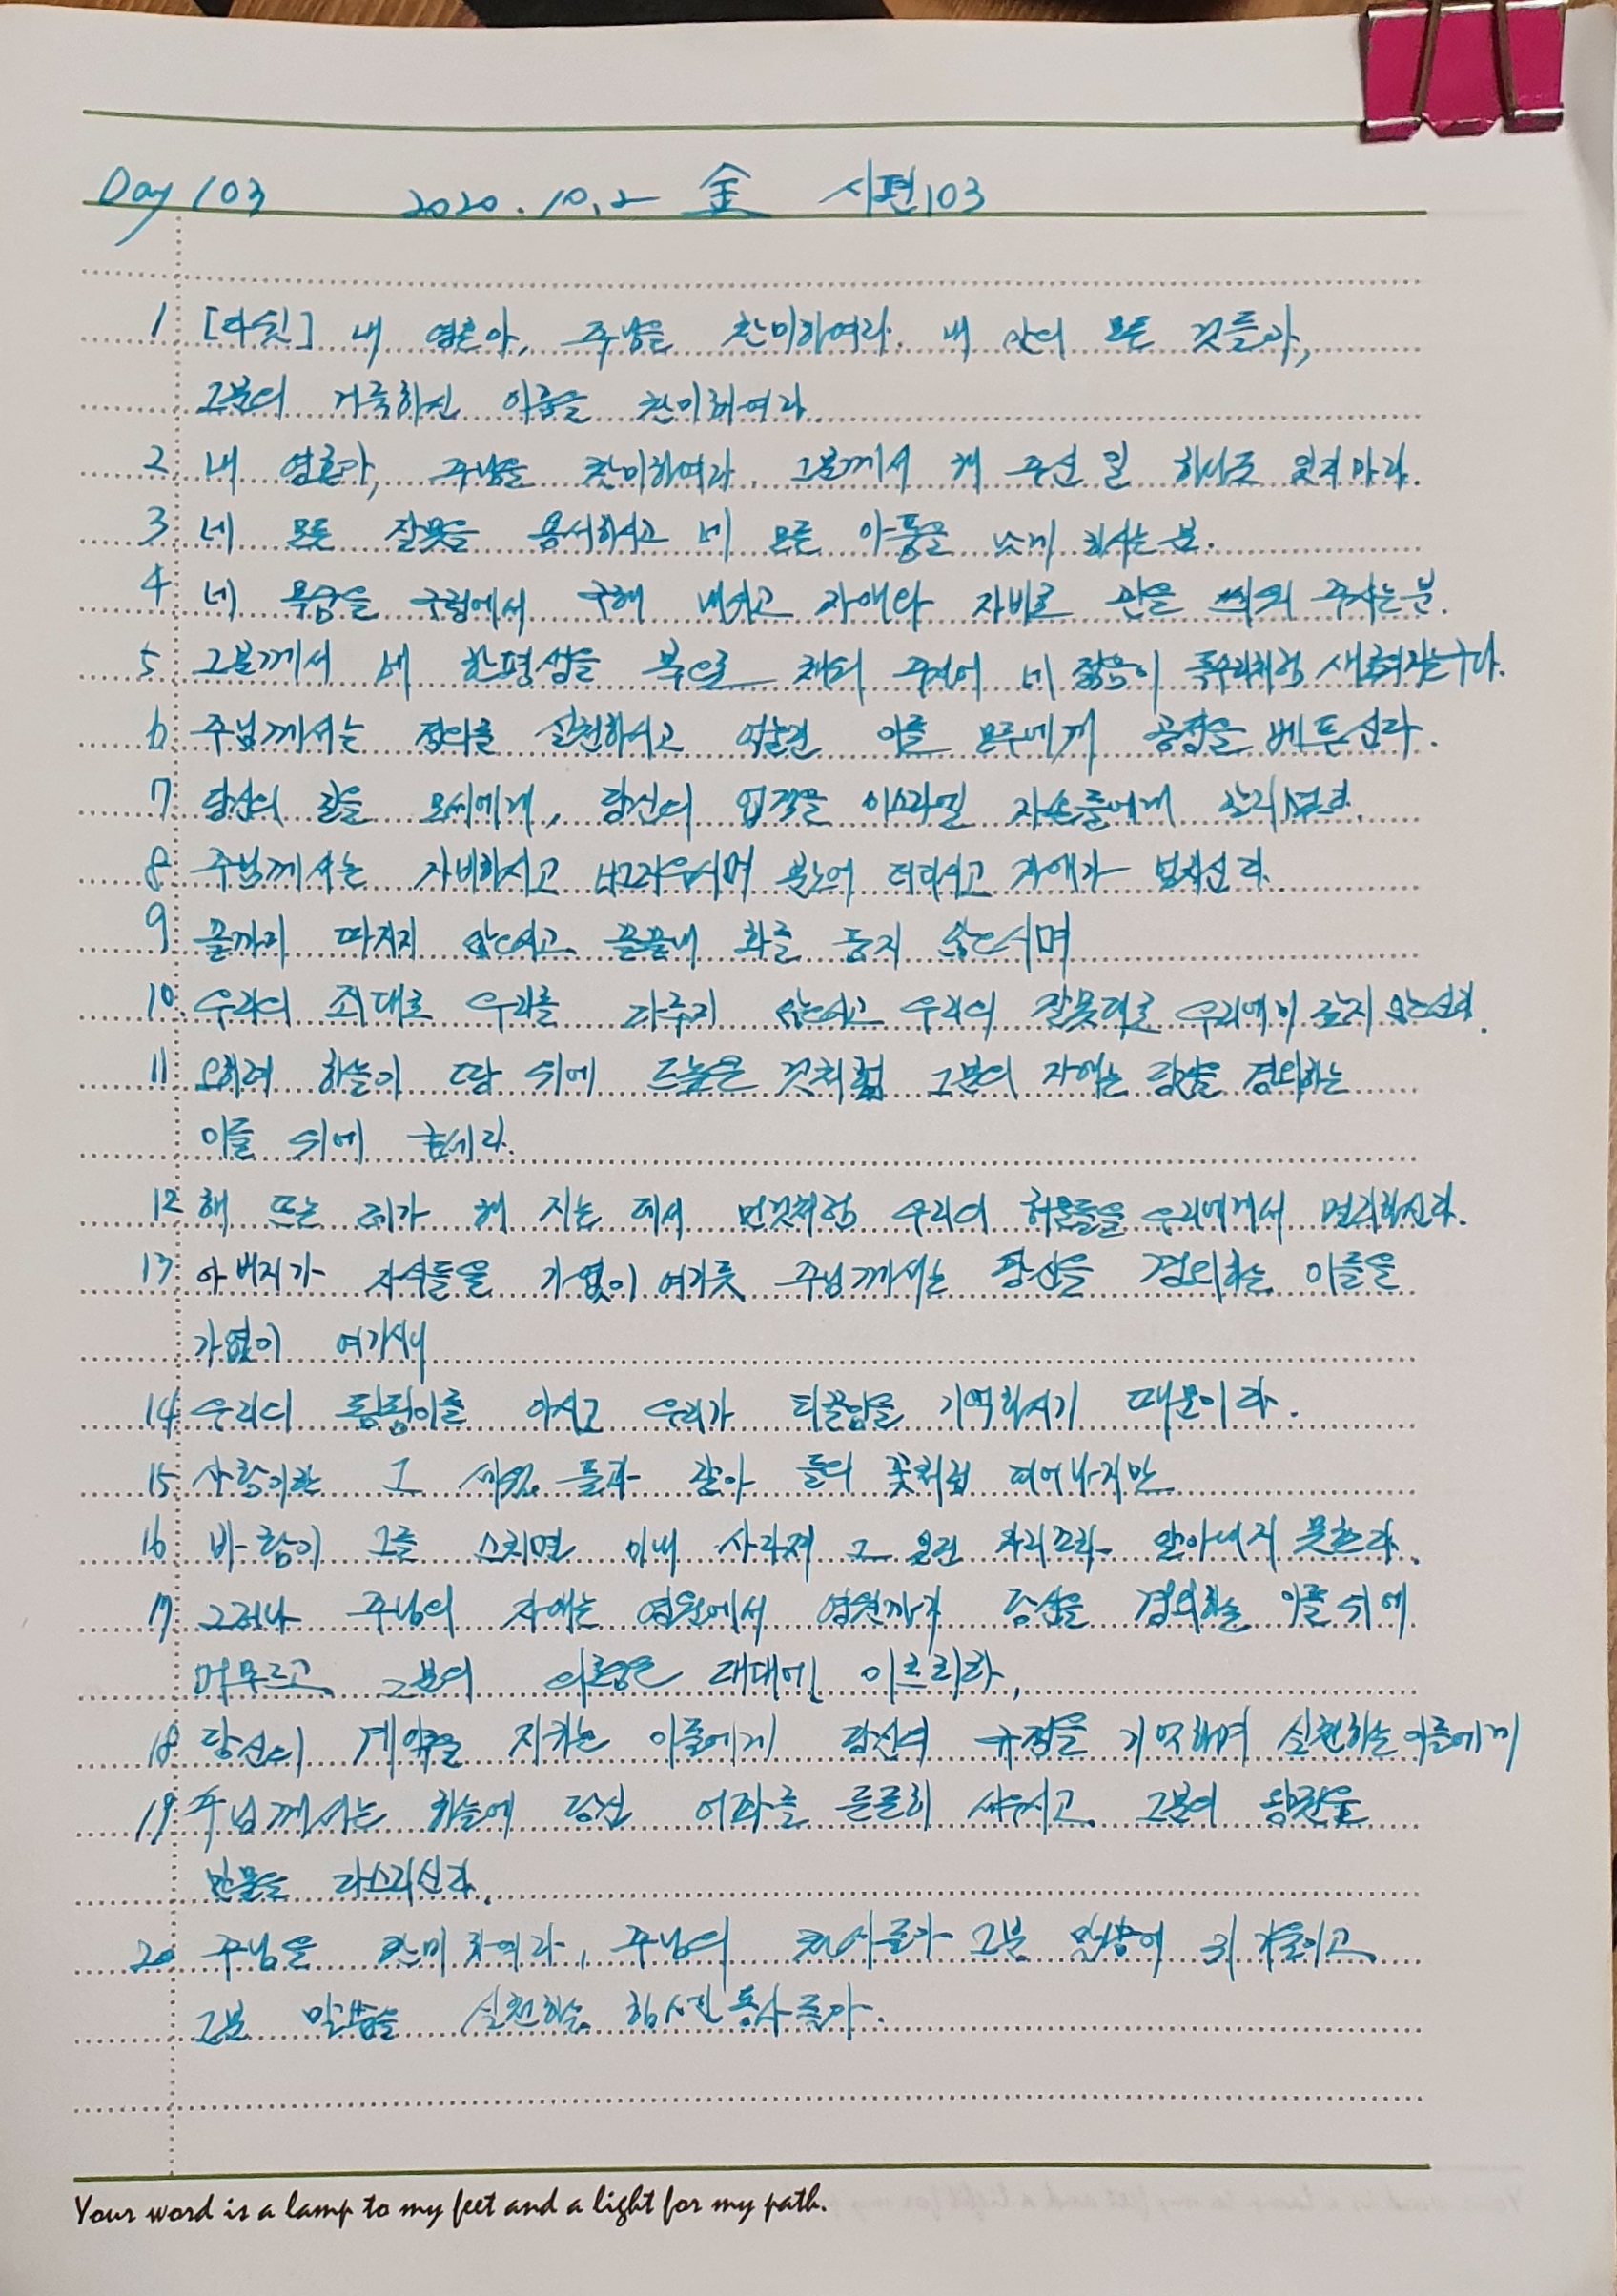 Day 103 2020.10.2 金 시편 103
1 [다윗] 내 영혼아, 주님을 찬미하여라. 내 안의 모든 것들아,
그분의 거룩하신 이름을 찬미하여라.
2 내 영혼아, 주님을 찬미하여라. 그분께서 해 주신 일 하나도 잊지 마라.
3 네 모든 잘못을 용서하시고 네 모든 아픔을 낫게 하시는 분.
4 네 목숨을 구렁에서 구해 내시고 자애와 자비로 관을 씌워 주시는 분.
5 그분께서 네 한평생을 복으로 채워 주시어 네 젊음이 독수리처럼 새로워지는구나.
6 주님께서는 정의를 실천하시고 억눌린 이들 모두에게 공정을 베푸신다.
7 당신의 길을 모세에게, 당신의 업적을 이스라엘 자손들에게 알리셨다.
8 주님께서는 자비하시고 너그러우시며 분노에 더디시고 자애가 넘치신다.
9 끝까지 따지지 않으시고 끝끝내 화를 품지 않으시며
10. 우리의 죄대로 우리를 다루지 않으시고 우리의 잘못대로 우리에게 갚지 않으신다.
11 오히려 하늘이 땅 위에 드높은 것처럼 그분의 자애는 당신을 경외하는
이들 위에 굳세다.
12 해 뜨는 데가 해 지는 데서 먼것처럼 우리의 허물들을 우리에게서 멀리하신다.
13 아버지가 자식들을 가엾이 여기듯 주님께서는 당신을 경외하는 이들을
가엾이 여기시니
14 우리의 됨됨이를 아시고 우리가 티끌임을 기억하시기 때문이다.
15 사람이란 그 세월 풀과 같아 들의 꽃처럼 피어나지만
16 바람이 그를 스치면 이내 사라져 그 있던 자리조차 알아내지 못한다.
17 그러나 주님의 자애는 영원에서 영원까지 당신을 경외하는 이들 위에
머무르고 그분의 의로움은 대대에 이르리라,
18 당신의 계약을 지키는 이들에게 당신의 규정을 기억하여 실천하는 이들에게
19 주님께서는 하늘에 당신 어좌를 든든히 세우시고 그분의 왕권은
만물을 다스리신다.
20 주님을 찬미하여라, 주님의 천사들아 그분 말씀에 귀 기울이고
그분 말씀을 실천하는 힘센 용사들아.
Your word is a lamp to my feet and a light for my path.